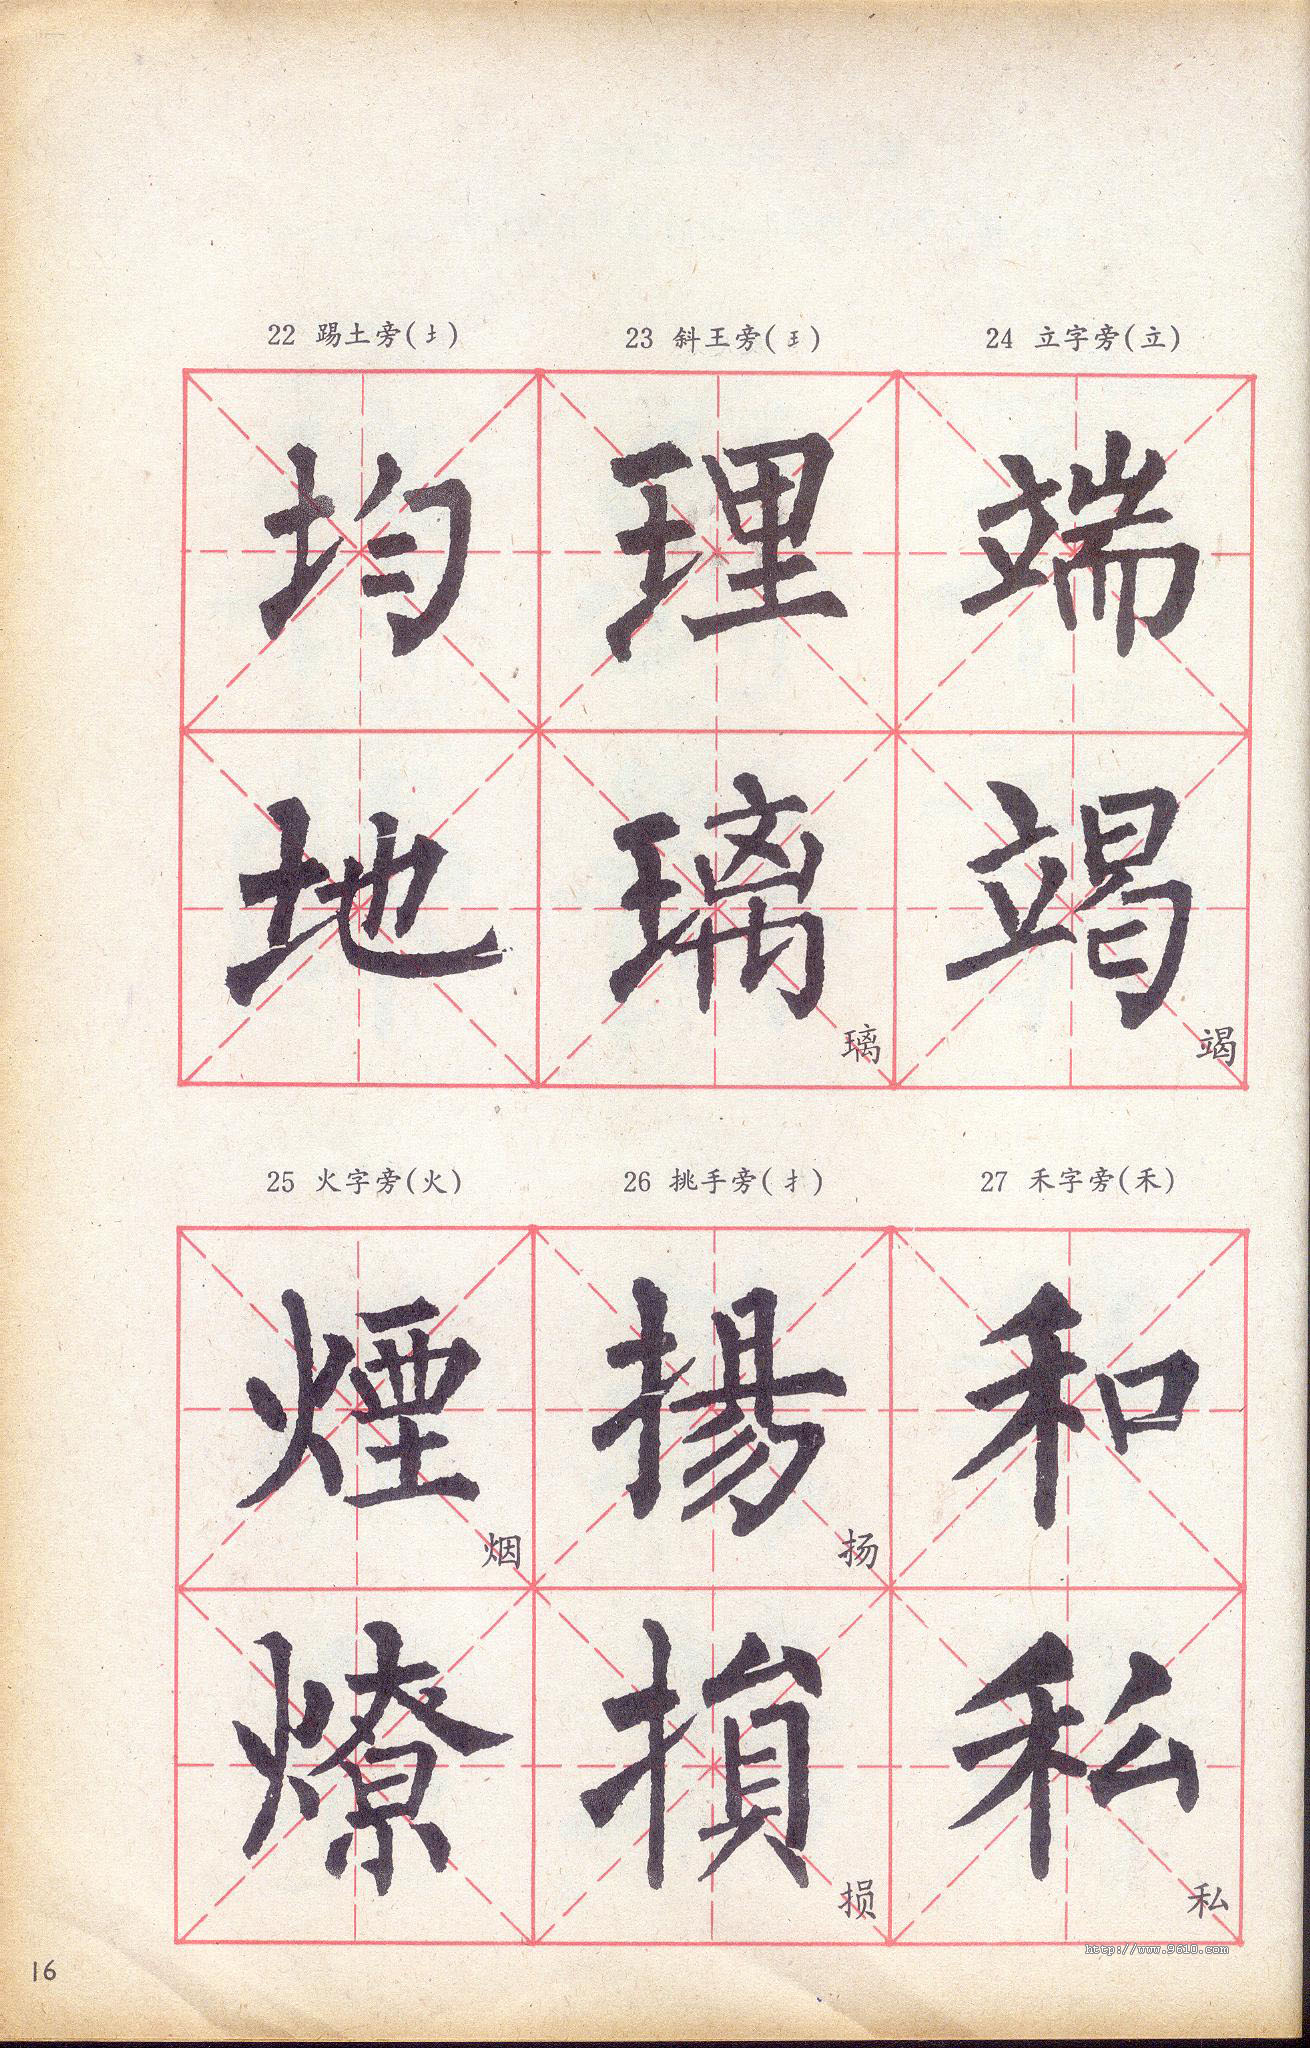 22 踢土旁(土) 23 斜王旁(王) 24 立字旁(立)
均 理 端
地 璃 竭
璃 竭
25 火字旁(火) 26 挑手旁(扌) 27 禾字旁(禾)
煙 揚 和
烟 扬
燎 損 私
损 私
http://www.9610.com
16